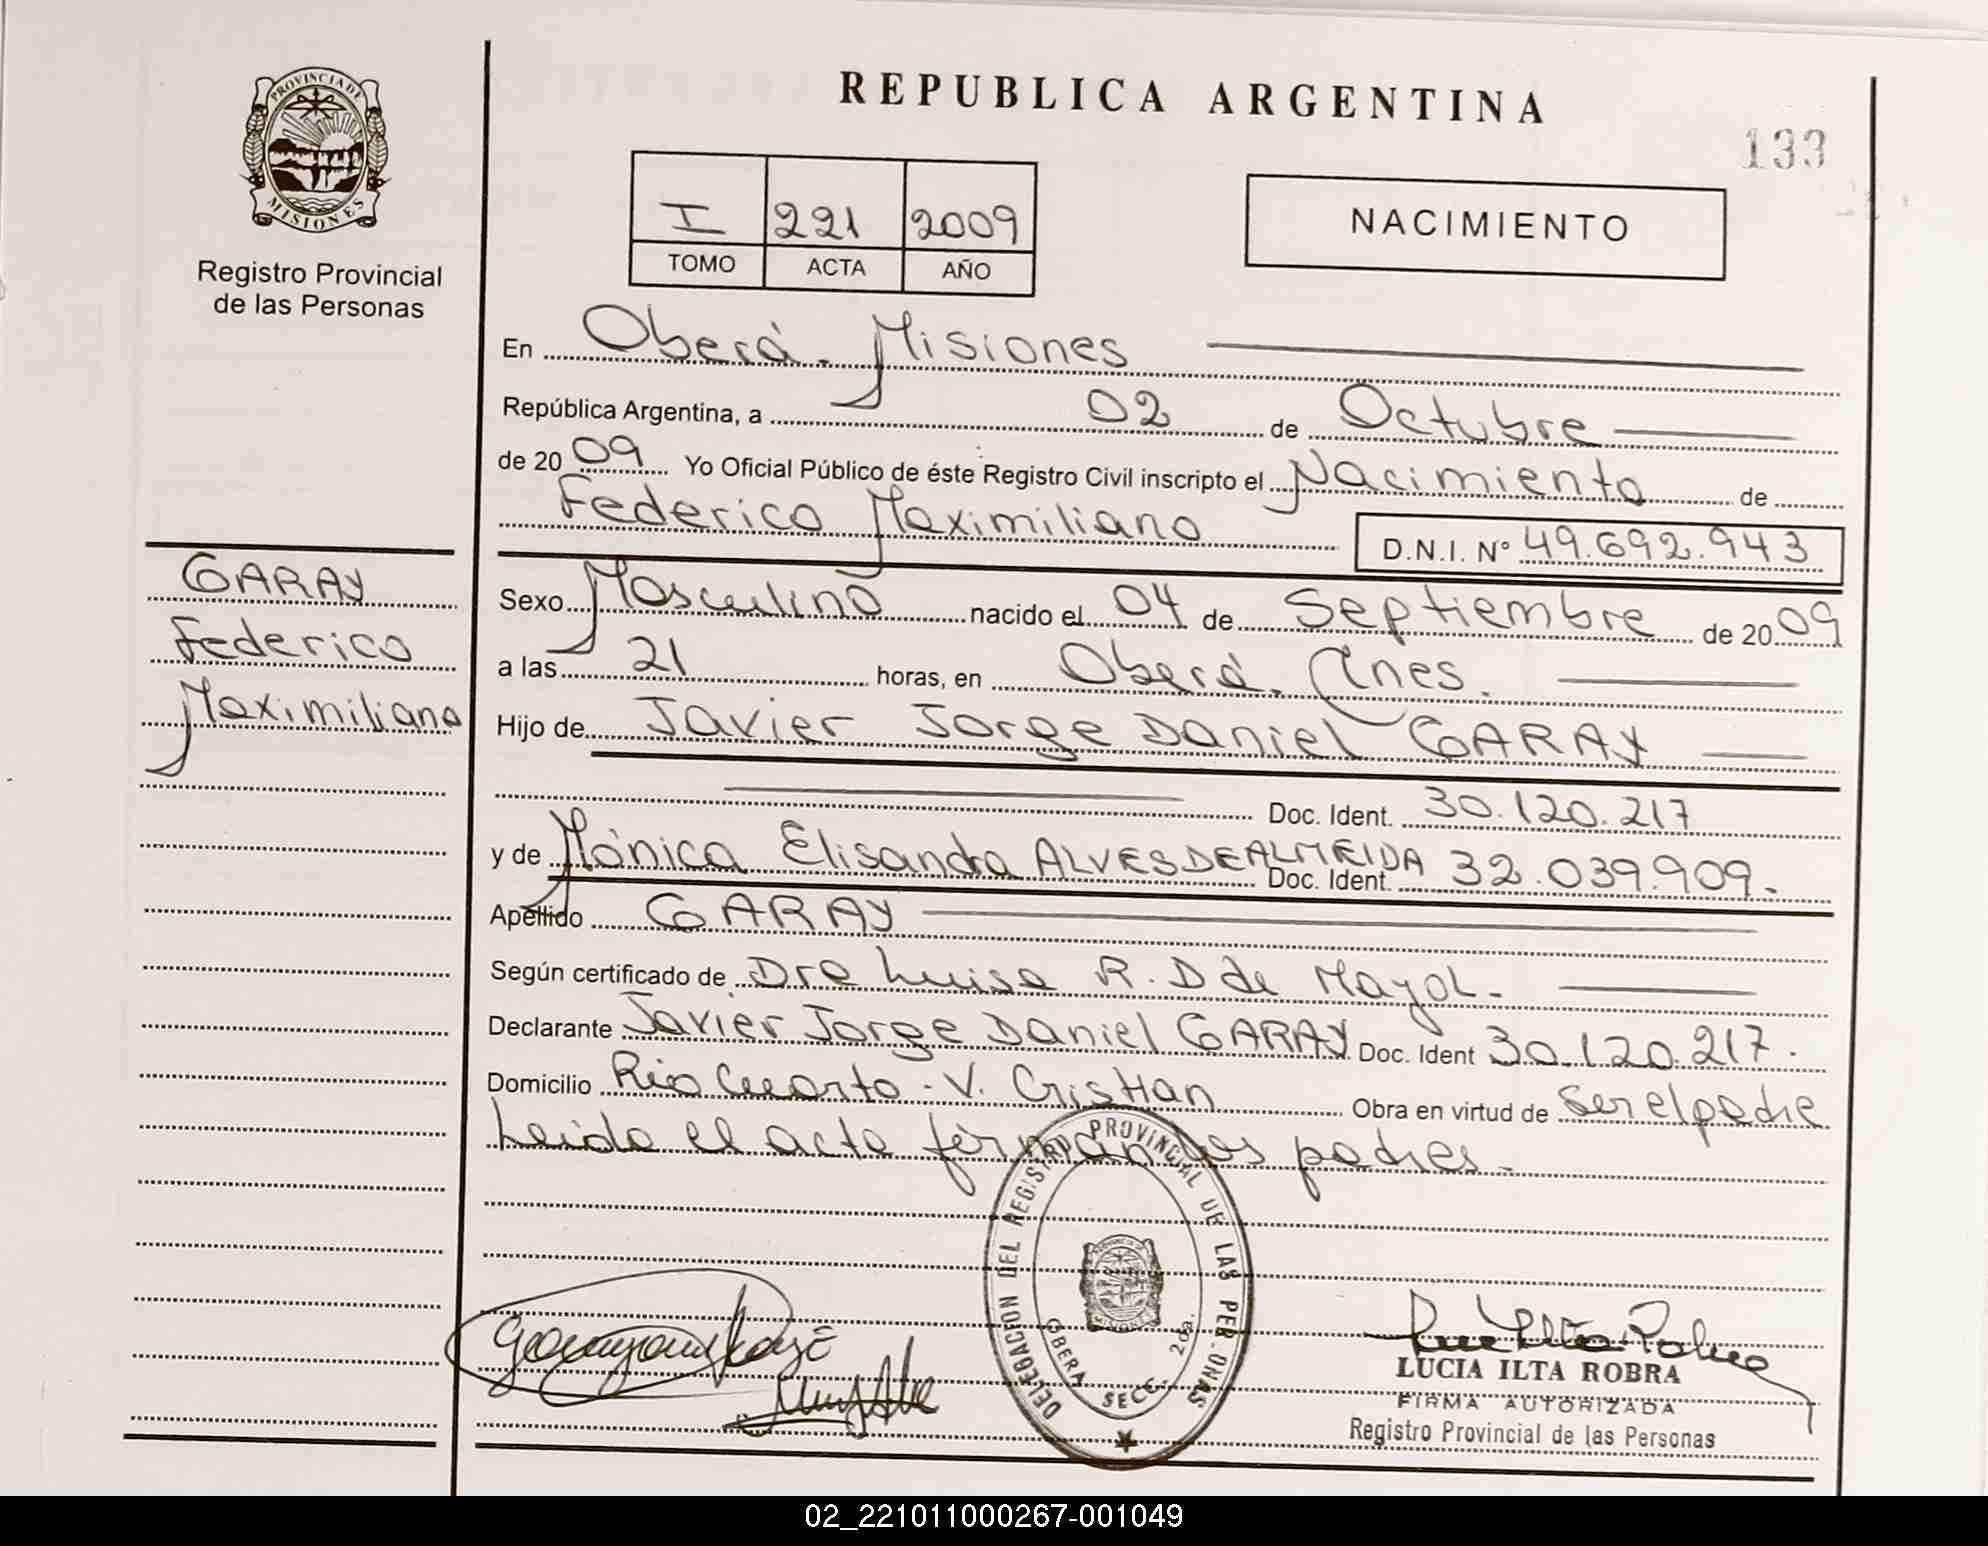 PROVINCIA DE
MISIONES
Registro Provincial
de las Personas
GARAY
Federico
Maximiliano
REPUBLICA ARGENTINA
133
I 221 2009
TOMO ACTA AÑO
NACIMIENTO
En Oberá - Misiones
República Argentina, a 02 de Octubre
de 2009 Yo Oficial Público de éste Registro Civil inscripto el Nacimiento de
Federico Maximiliano D.N.I. Nº 49.692.943
Sexo Masculino nacido el 04 de Septiembre de 2009
a las 21 horas, en Oberá. Mnes.
Hijo de Javier Jorge Daniel GARAY
Doc. Ident. 30.120.217
y de Mónica Elisandra ALVES DE ALMEIDA Doc. Ident. 32.039.909.
Apellido GARAY
Según certificado de Dra Luisa R. D de Mayol.
Declarante Javier Jorge Daniel GARAY Doc. Ident 30.120.217.
Domicilio Rio Cuarto - V. Cristian Obra en virtud de Ser el padre
Leida el acta firman los padres.
DELEGACION DEL REGISTRO PROVINCIAL DE LAS PERSONAS
OBERA SECC. 2da.
LUCIA ILTA ROBRA
FIRMA AUTORIZADA
Registro Provincial de las Personas
02_221011000267-001049